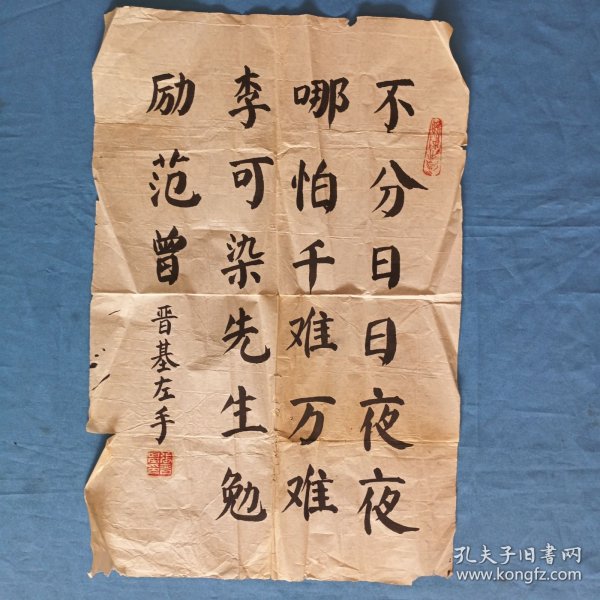 不分日日夜夜
哪怕千难万难
李可染先生勉
励范曾
晋基左手
孔夫子旧书网
www.kongfz.com